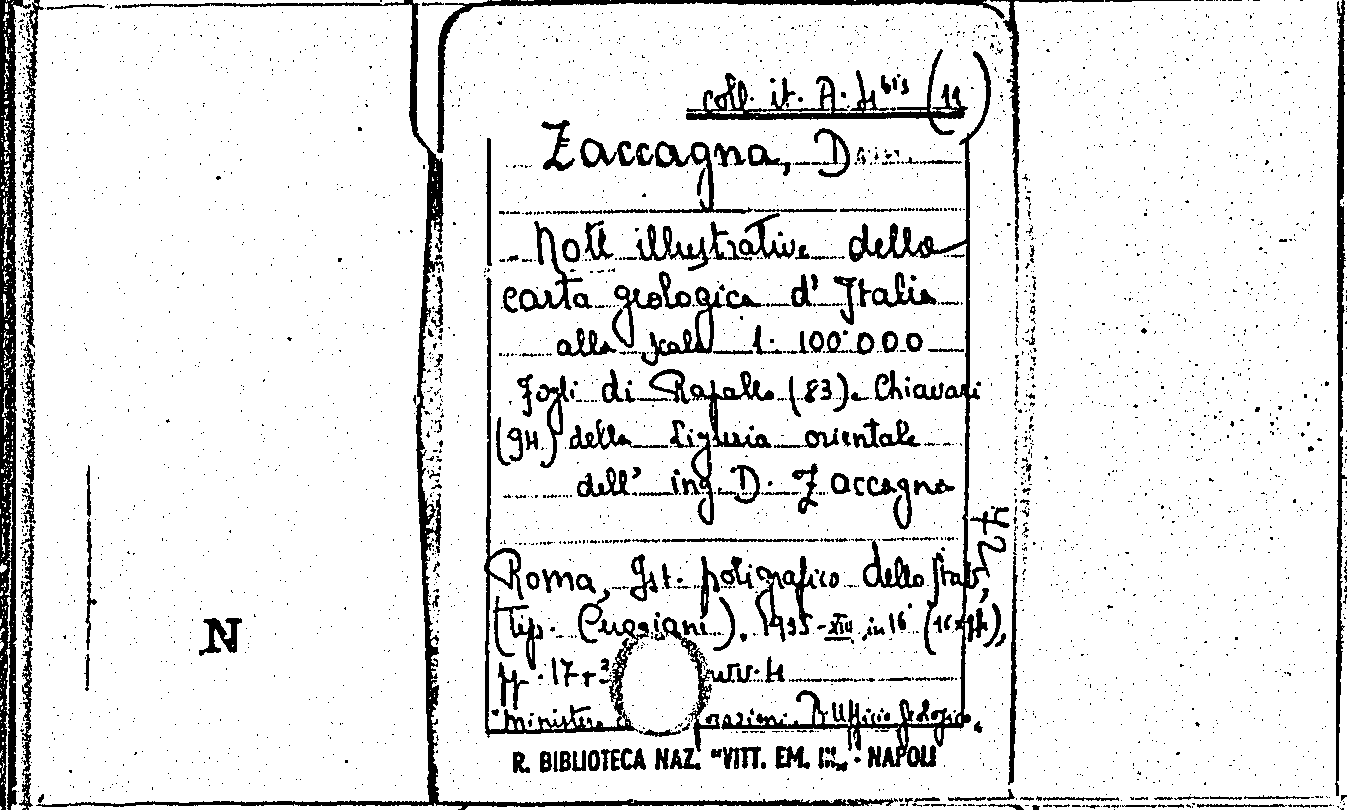 coll. it. A. 4 bis (11)
Zaccagna, Dom.
Note illustrative della
carta geologica d'Italia
alla scala 1. 100.000
Fogli di Rapallo (83). Chiavari
(94) della Liguria orientale
dell' ing. D. Zaccagna
42
Roma, Ist. poligrafico dello Stato,
(Tip. Cuggiani). 1935-XIII in 16°
N
pp. 17+3
Ministero R. Ufficio geologico.
R. BIBLIOTECA NAZ. "VITT. EM. III„ - NAPOLI